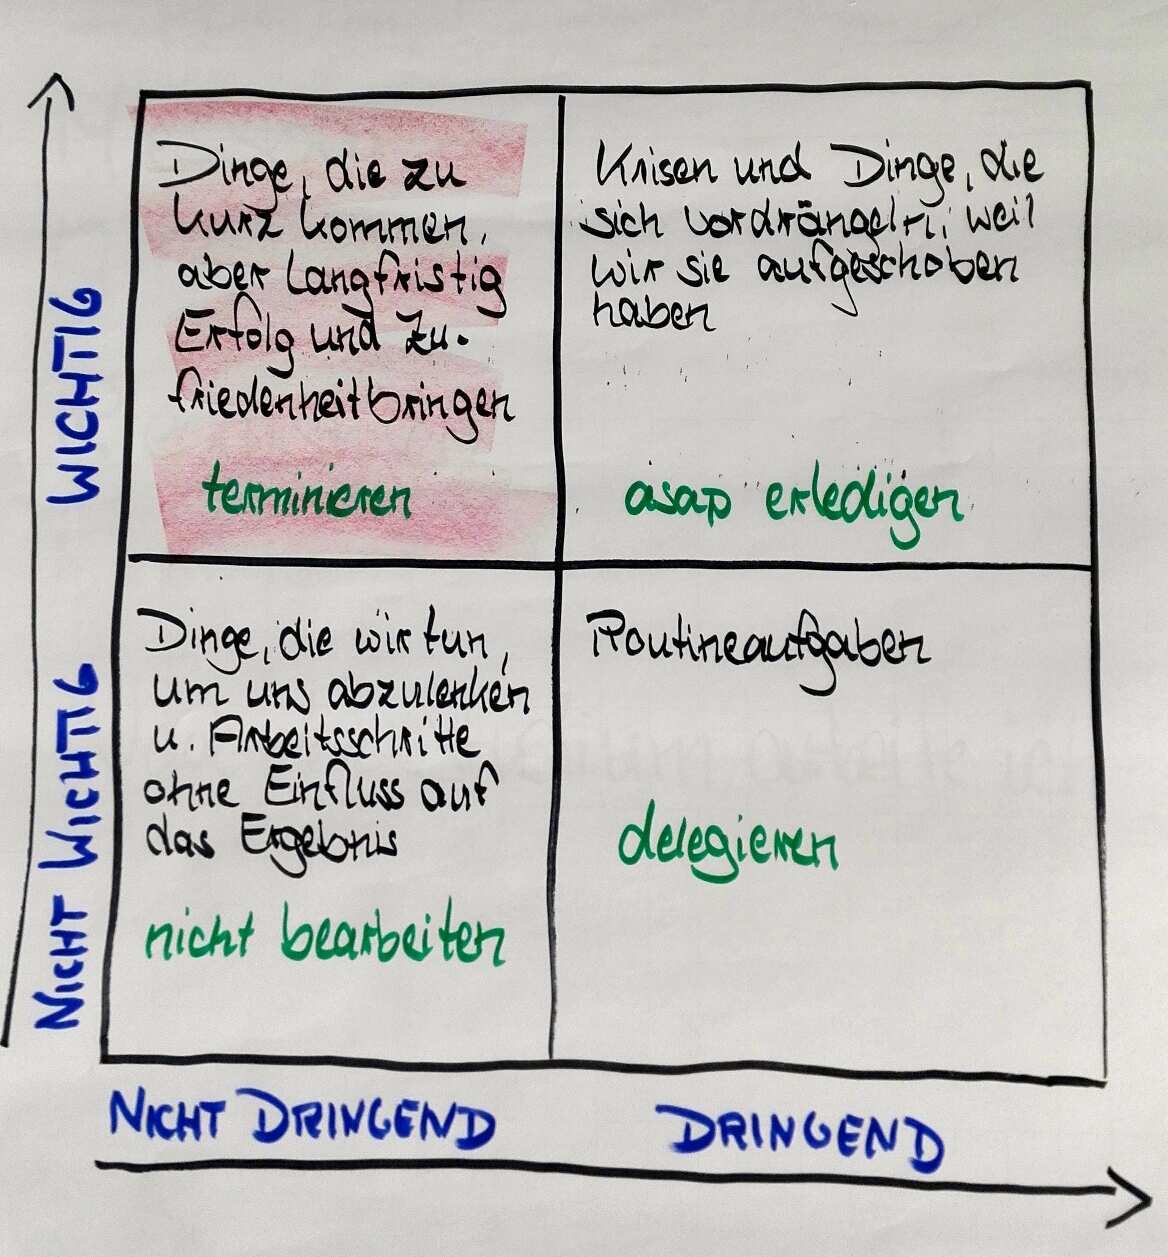 WICHTIG
Dinge, die zu
kurz kommen,
aber langfristig
Erfolg und Zu-
friedenheit bringen
terminieren
Krisen und Dinge, die
sich vordrängeln, weil
wir sie aufgeschoben
haben
asap erledigen
NICHT WICHTIG
Dinge, die wir tun,
um uns abzulenken
u. Arbeitsschritte
ohne Einfluss auf
das Ergebnis
nicht bearbeiten
Routineaufgaben
delegieren
NICHT DRINGEND
DRINGEND